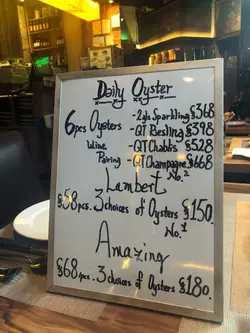 Daily Oyster
6pcs Oysters -2gls Sparkling $368
-QT Riesling $398
Wine -QT Chablis $528
Pairing -QT Champagne $668
Lambert No.2
$58/pcs. 3 choices of Oysters $150
Amazing No.1
$68/pcs. 3 choices of Oysters $180.